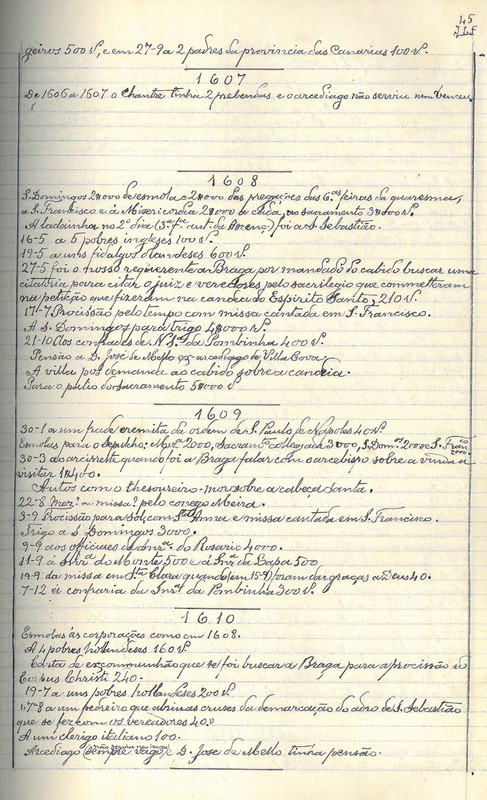 45
715
geiros 500 rs, e em 27-9 a 2 padres da provincia das Canarias 100 rs.
1607
De 1606 a 1607 o Chantre tinha 2 prebendas e o arcediago não serviu nem venceu.
1608
S. Domingos 2$000 de esmola e 2$000 das pregações das 6.as feiras da quaresma,
a S. Francisco e á Misericordia 2$000 a cada, ao sacramento 3$000 rs.
A ladainha no 2º dia (3.ª fr.ª ant. da Ascenç) foi a S. Sebastião.
16-5 a 5 pobres ingleses 100 rs.
19-5 a uns fidalgos Irlandeses 600 rs.
27-5 foi o nosso requerente a Braga por mandado do cabido buscar uma
citatoria para citar o juiz e vereadores pelo sacrilegio que commetteram
na petição que fizeram na candea do Espirito Santo, 210 rs.
17-7 Procissão pelo tempo com missa cantada em S. Francisco.
A S. Domingos para trigo 4$000 rs.
21-10 Aos confrades de N. Sr.ª da Pombinha 400 rs.
Pensão a D. José de Mello ex-arcediago de Villa Cova.
A villa poz demanda ao cabido sobre a candeia.
Para o palio do Sacramento 5$000 rs
1609
30-1 a um frade eremita da ordem de S. Paulo de Napoles 40 rs.
Esmolas para o Sepulchro: Mis.ª 2000, Sacram.to collegiada 3000, S. Dom.os 2000 e S. Fran.co 2000.
30-3 do arcipreste quando foi a Braga falar com o arcebispo sobre a vinda a
visitar 1$400.
Autos com o thesoureiro-mor sobre a cabeça santa.
22-8 missa pelo conego Meira.
3-9 Procissão para sol, com S.ta Anna e missa cantada em S. Francisco.
Trigo a S. Domingos 3000.
9-9 aos officiaes da Snr.ª do Rosario 4000.
11-9 á Snr.ª do Monte 500 e á Snr.ª da Lapa 500
19-9 da missa em S.ta Clara quando (em 15-9) foram dar graças a Deus 40.
7-12 á confraria da Snr.ª da Pombinha 300 rs.
1610
Esmolas ás corporações como em 1608.
A 4 pobres hollandeses 160 rs.
Carta de excommunhão que se foi buscar a Braga para a procissão de
Corpus Christi 240.
19-7 a uns pobres hollandeses 200 rs.
7-8 a um pedreiro que abriu as cruses da demarcação do adro de S. Sebastião
que se fez com os vereadores 40.
A um clerigo italiano 100.
Arcediago (sempre vago, não serviu nem venceu) e D. José de Mello tinha pensão.